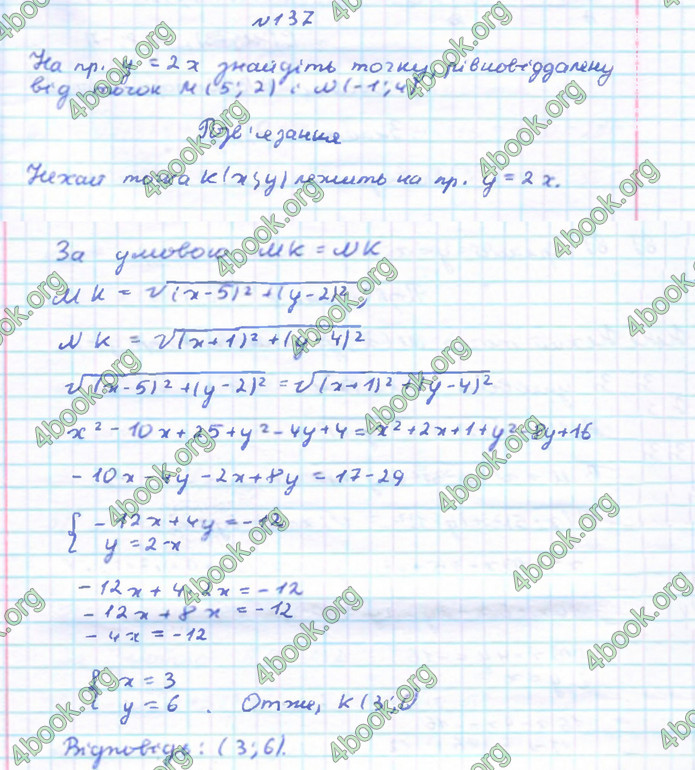 №137
На пр. y = 2x знайдіть точку рівновіддалену
від точок M(5; 2) і N(-1; 4)
Розв'язання
Нехай точка K(x; y) лежить на пр. y = 2x.
За умовою MK = NK
MK = √(x-5)² + (y-2)²;
NK = √(x+1)² + (y-4)²
√(x-5)² + (y-2)² = √(x+1)² + (y-4)²
x² - 10x + 25 + y² - 4y + 4 = x² + 2x + 1 + y² - 8y + 16
-10x - 4y - 2x + 8y = 17 - 29
{ -12x + 4y = -12
y = 2·x
-12x + 4·2x = -12
-12x + 8x = -12
-4x = -12
{ x = 3
y = 6 . Отже, K(3; 6)
Відповідь: (3; 6).
4book.org